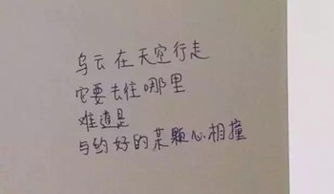 乌云在天空行走
它要去往哪里
难道是
与约好的某颗心相撞